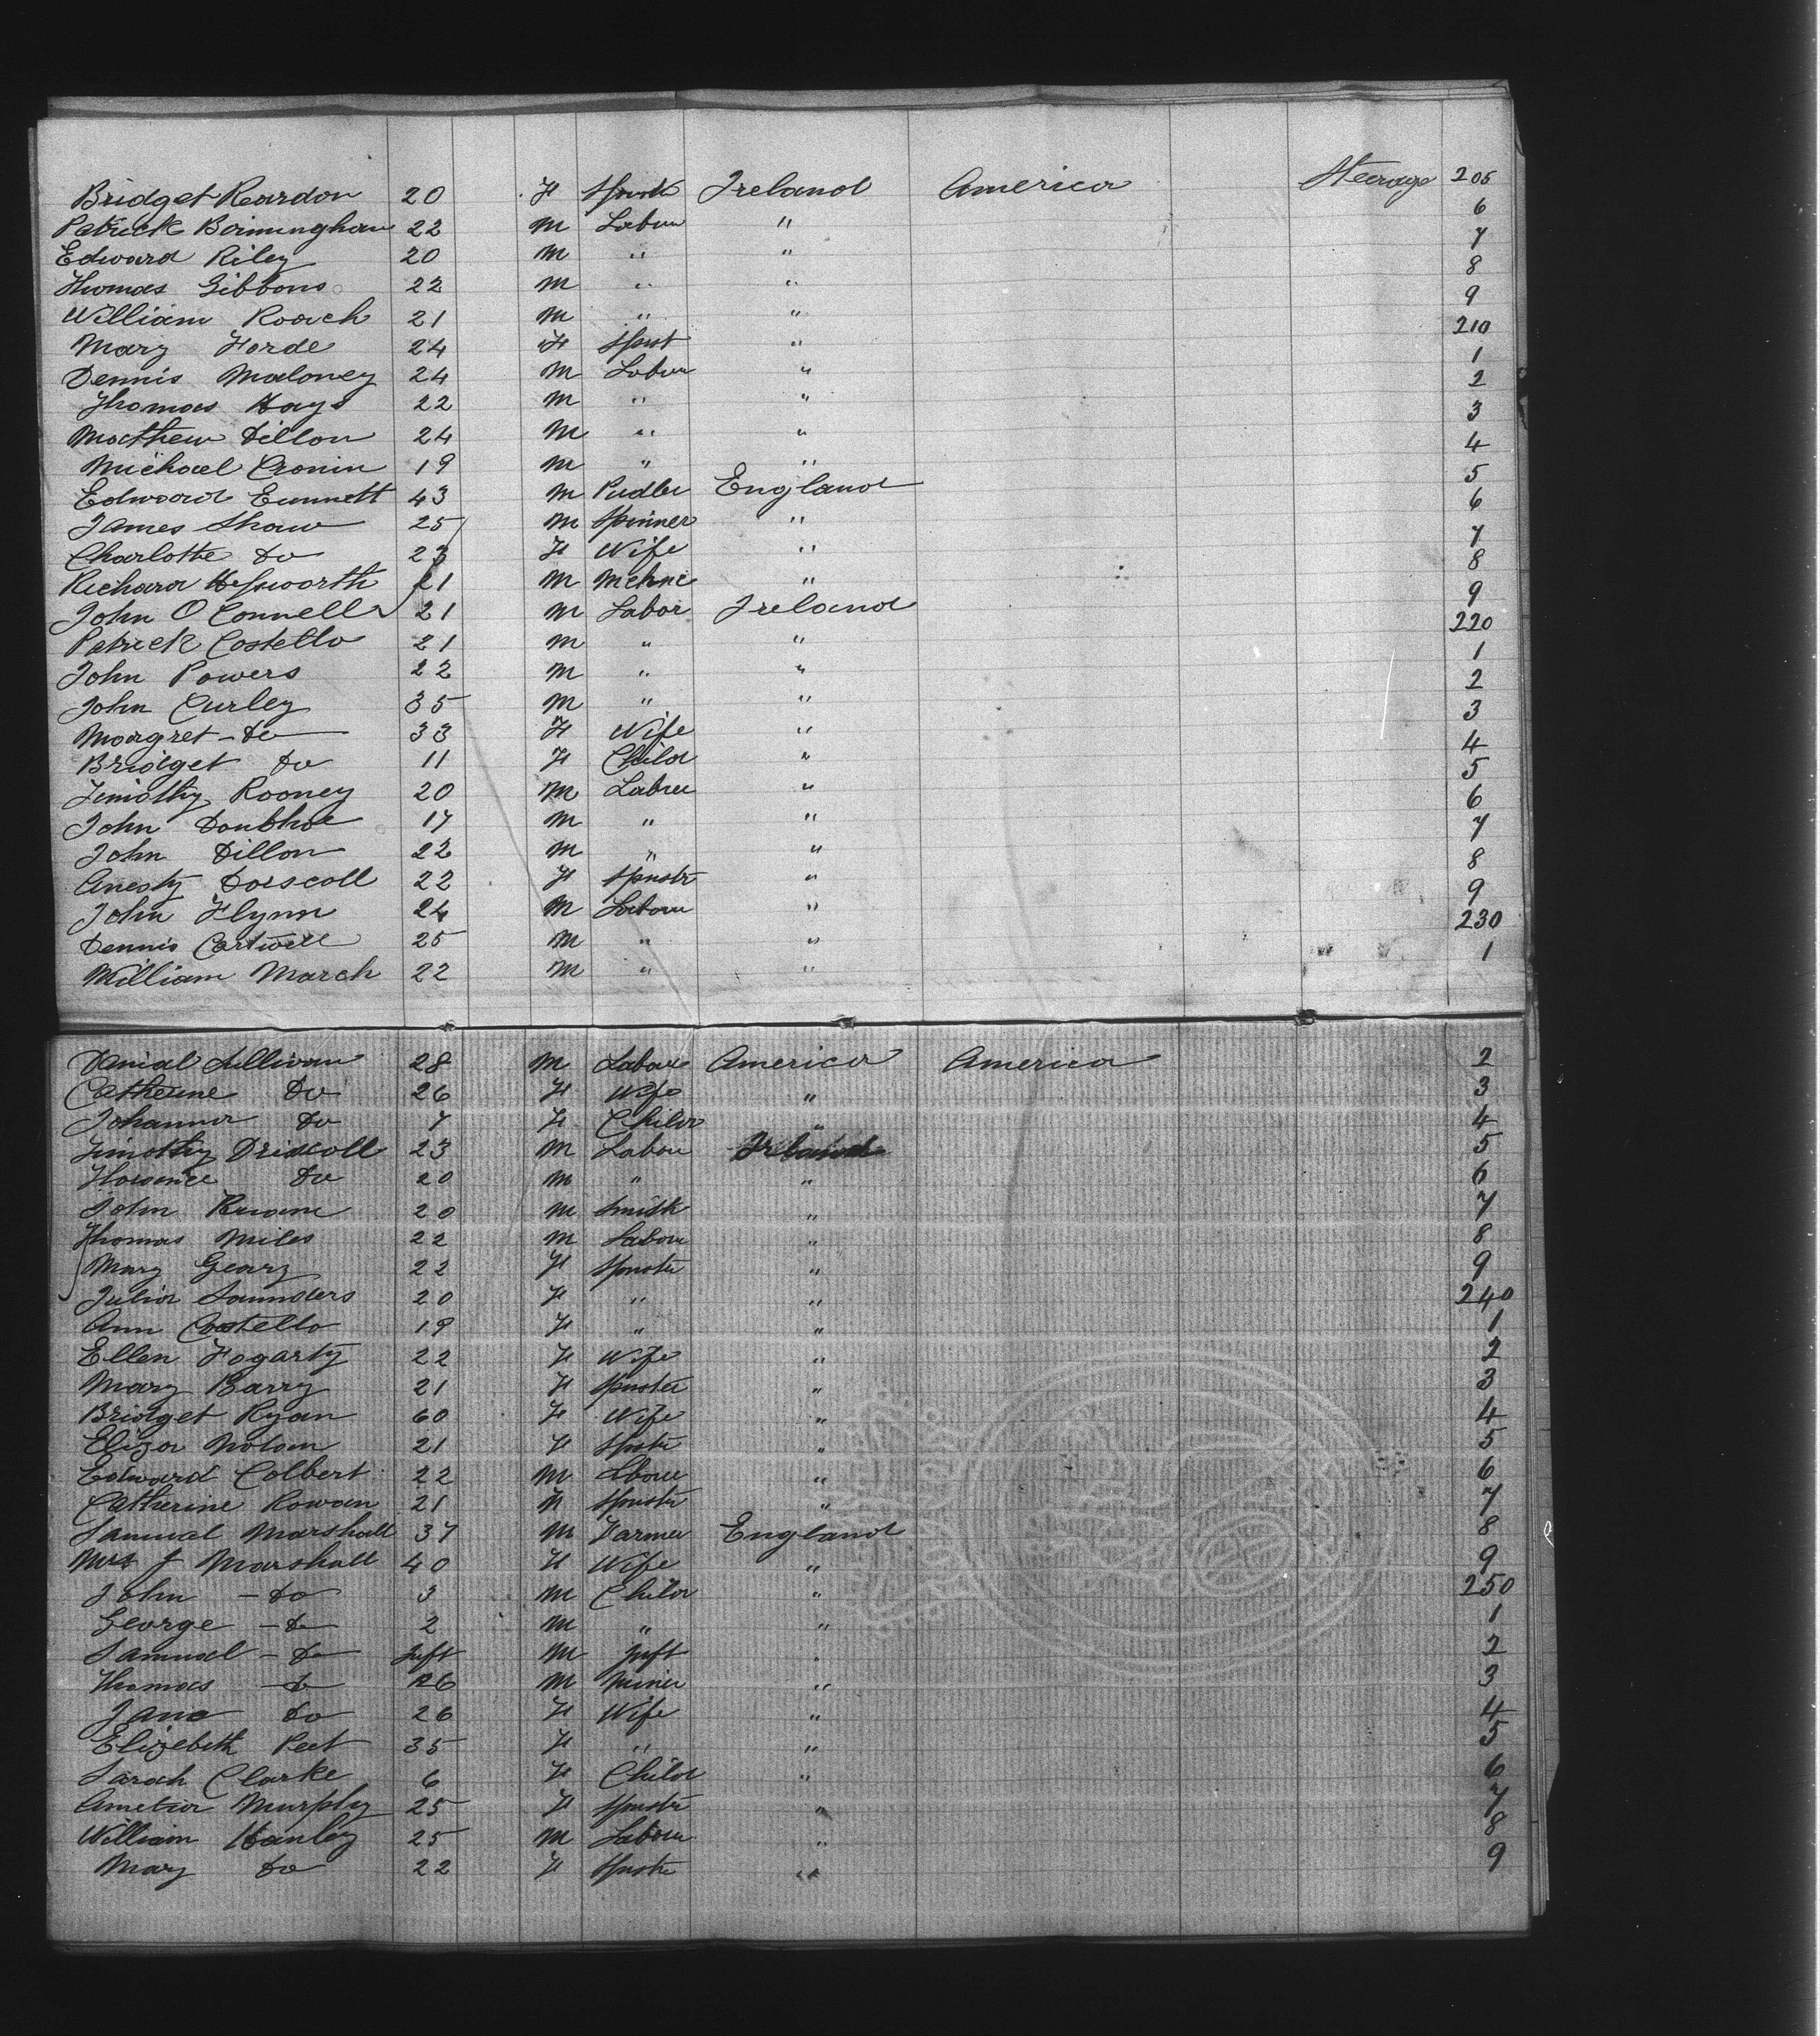 Bridget Reardon 20 F Spinst Ireland America Steerage 205
Patrick Birmingham 22 M Labour " 6
Edward Riley 20 M " " 7
Thomas Gibbons 22 M " " 8
William Roach 21 M " " 9
Mary Forde 24 F Spnst " 210
Dennis Maloney 24 M Labour " 1
Thomas Hays 22 M " " 2
Mathew Dillon 24 M " " 3
Michael Cronin 19 M " " 4
Edward Emmett 43 M Pudler England 5
James Shaw 25 M Spinner " 6
Charlotte Do 23 F Wife " 7
Richard Hepworth 21 M Mchnc " 8
John O Connell 21 M Labor Ireland 9
Patrick Costello 21 M " " 220
John Powers 22 M " " 1
John Curley 35 M " " 2
Margret - Do 33 F Wife " 3
Bridget Do 11 F Child " 4
Timothy Rooney 20 M Labour " 5
John 17 M " " 6
John Dillon 22 M " " 7
Driscoll 22 F Spnstr " 8
John Flynn 24 M Labour " 9
Dennis Cartwell 25 M " " 230
William March 22 M " " 1
Danial Sullivan 28 M Labour America America 2
Catherine Do 26 F Wife " 3
Johanna Do 7 F Child " 4
Timothy Driscoll 23 M Labour Ireland 5
Florence Do 20 M " " 6
John 20 M Smith " 7
Thomas Miles 22 M Labour " 8
Mary Geary 22 F Spnstr " 9
Julia Saunders 20 F " " 240
Ann Costello 19 F " " 1
Ellen Fogarty 22 F Wife " 2
Mary Barry 21 F Spnster " 3
Bridget Ryan 60 F Wife " 4
Eliza Nolan 21 F Spnstr " 5
Edward Colbert 22 M Laboure " 6
Catherine Rowan 21 F Spnstr " 7
Samual Marshall 37 M Farmer England 8
Mrs J Marshall 40 F Wife " 9
John - Do 3 M Child " 250
George - Do 2 M " " 1
Samual - Do Inft M Inft " 2
Thomas - Do 26 M Miner " 3
Jane Do 26 F Wife " 4
Elizebeth Peet 35 F " " 5
Sarah Clarke 6 F Child " 6
Murphy 25 F Spnstr " 7
William Hanley 25 M Labour " 8
Mary Do 22 F Spnstr " 9